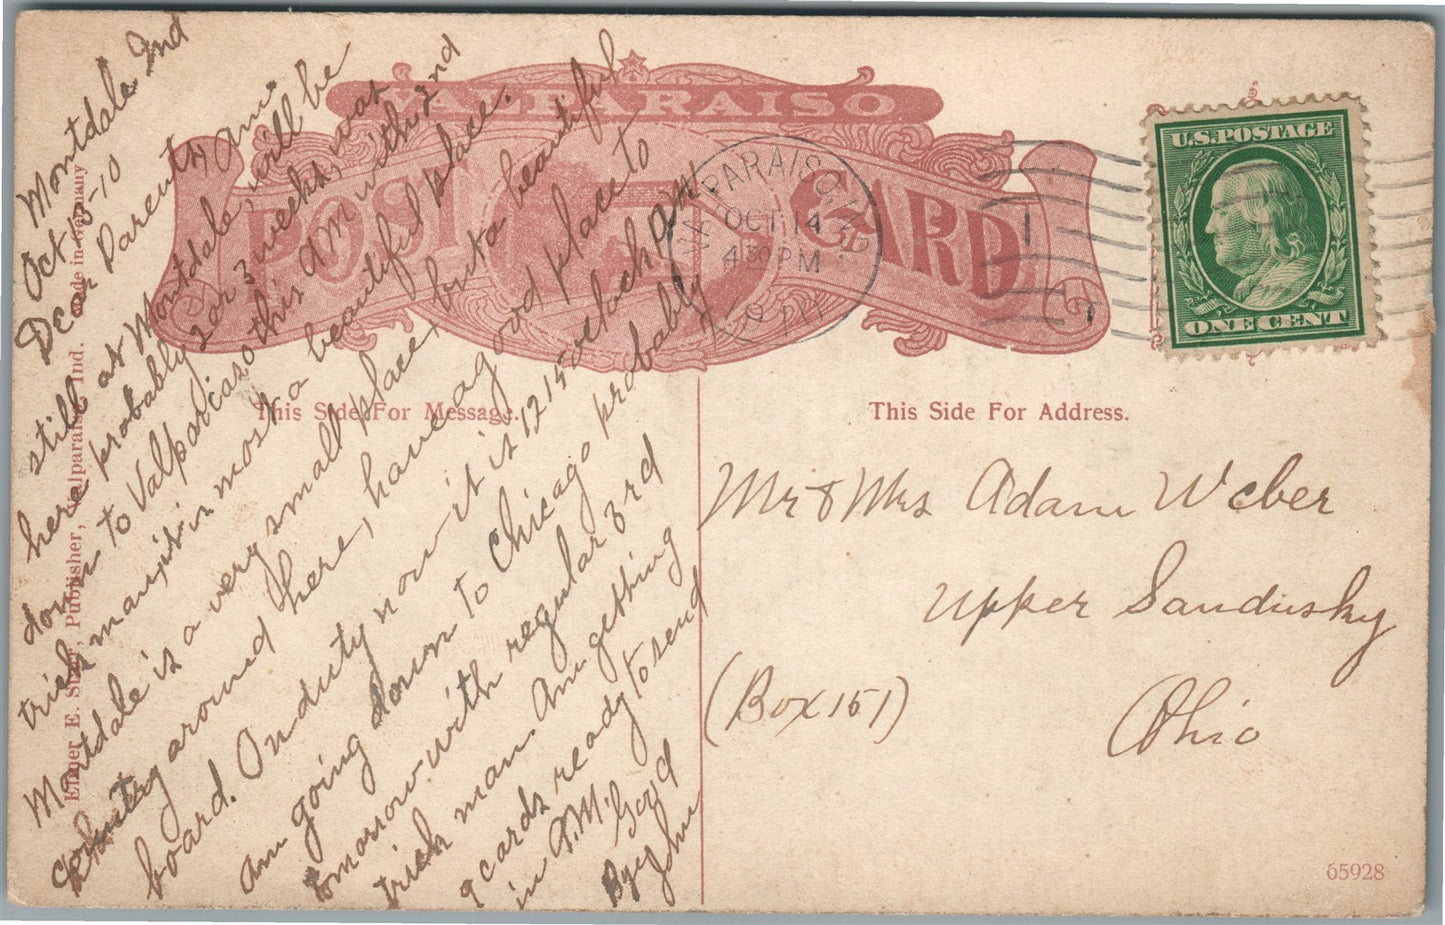 VALPARAISO
POST CARD
This Side For Message.
This Side For Address.
Elmer E. Starr, Publisher, Valparaiso, Ind. Made in Germany
VALPARAISO, IND.
OCT 14
4 30 PM
U.S. POSTAGE
ONE CENT
Montdale Ind
Oct 13-10
Dear Parents, Am
still at Montdale, will be
here probably 2 or 3 weeks, was
down to Valparaiso this AM with 2nd
trick man, it is most a beautiful place.
Montdale is a very small place, but a beautiful
country around here, have a good place to
board. On duty now it is 12 15 oclock AM
Am going down to Chicago probably
tomorrow with regular 3rd
trick man. Am getting
9 cards ready to send
in A.M. Good
Bye John
Mr & Mrs Adam Weber
Upper Sandusky
(Box 151)
Ohio
65928